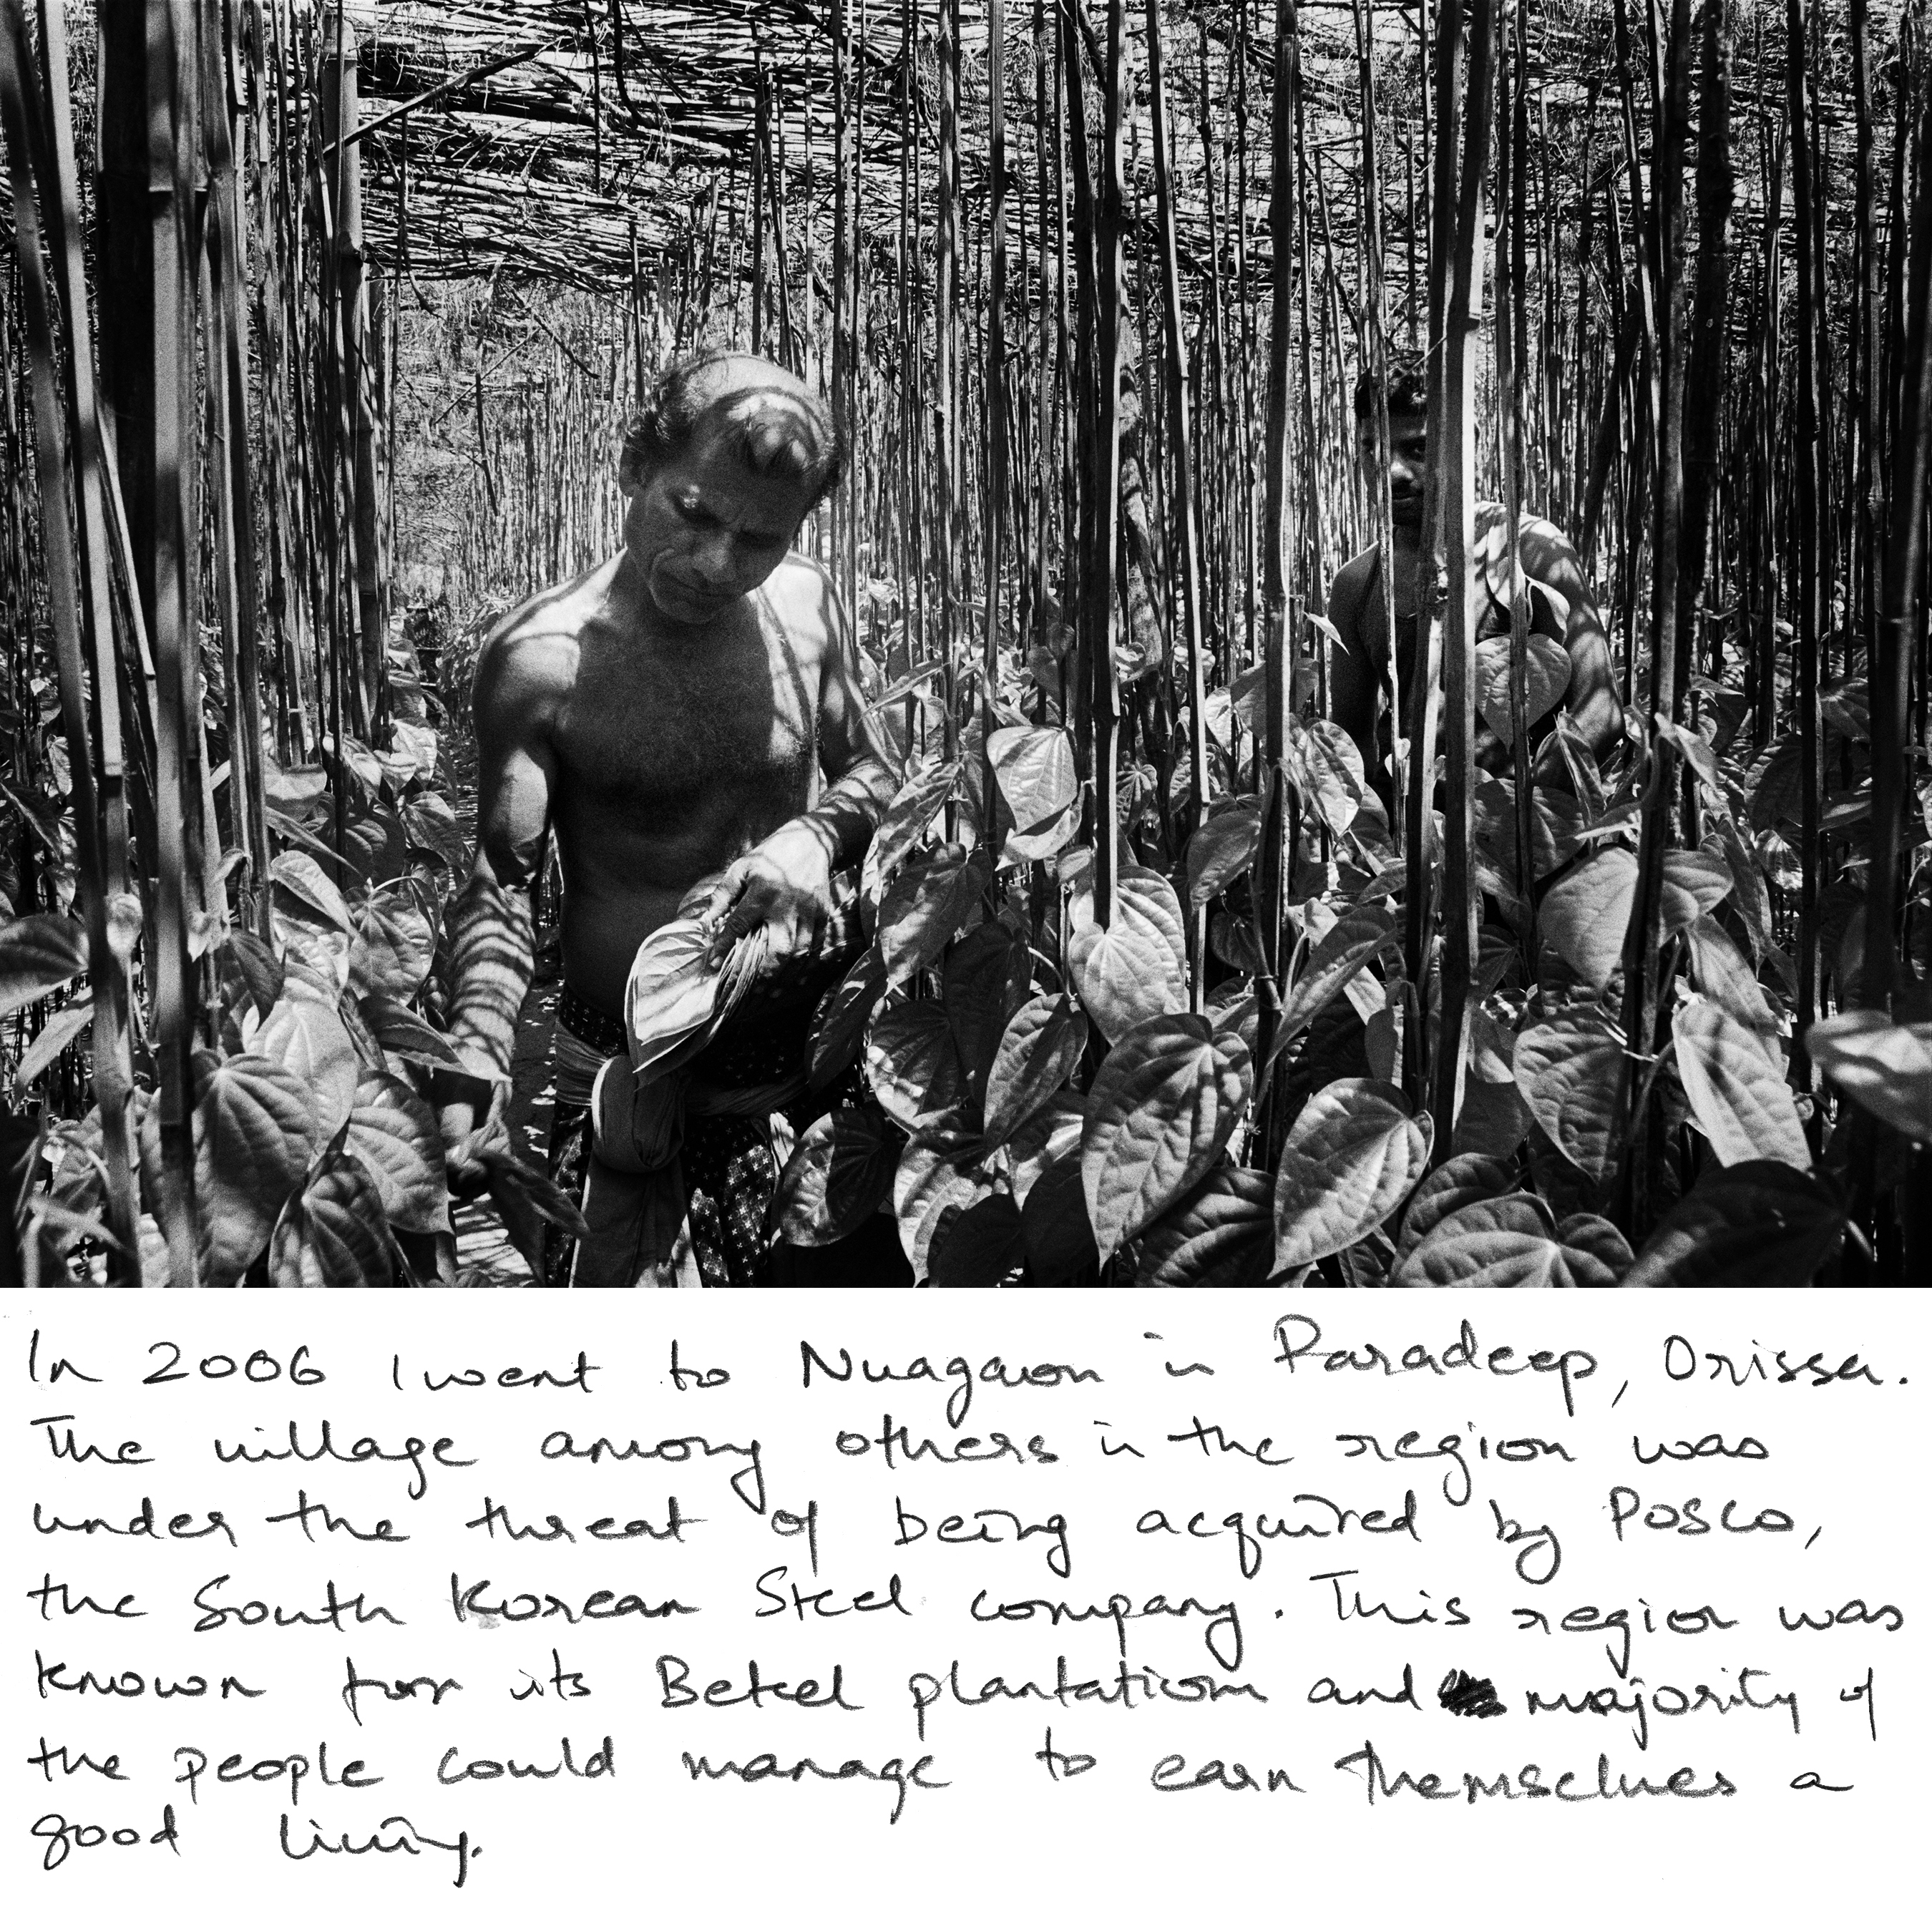 In 2006 I went to Nuagaon in Paradeep, Orissa.
The village among others in the region was
under the threat of being acquired by POSCO,
the South Korean Steel company. This region was
known for its Betel plantation and majority of
the people could manage to earn themselves a
good living.